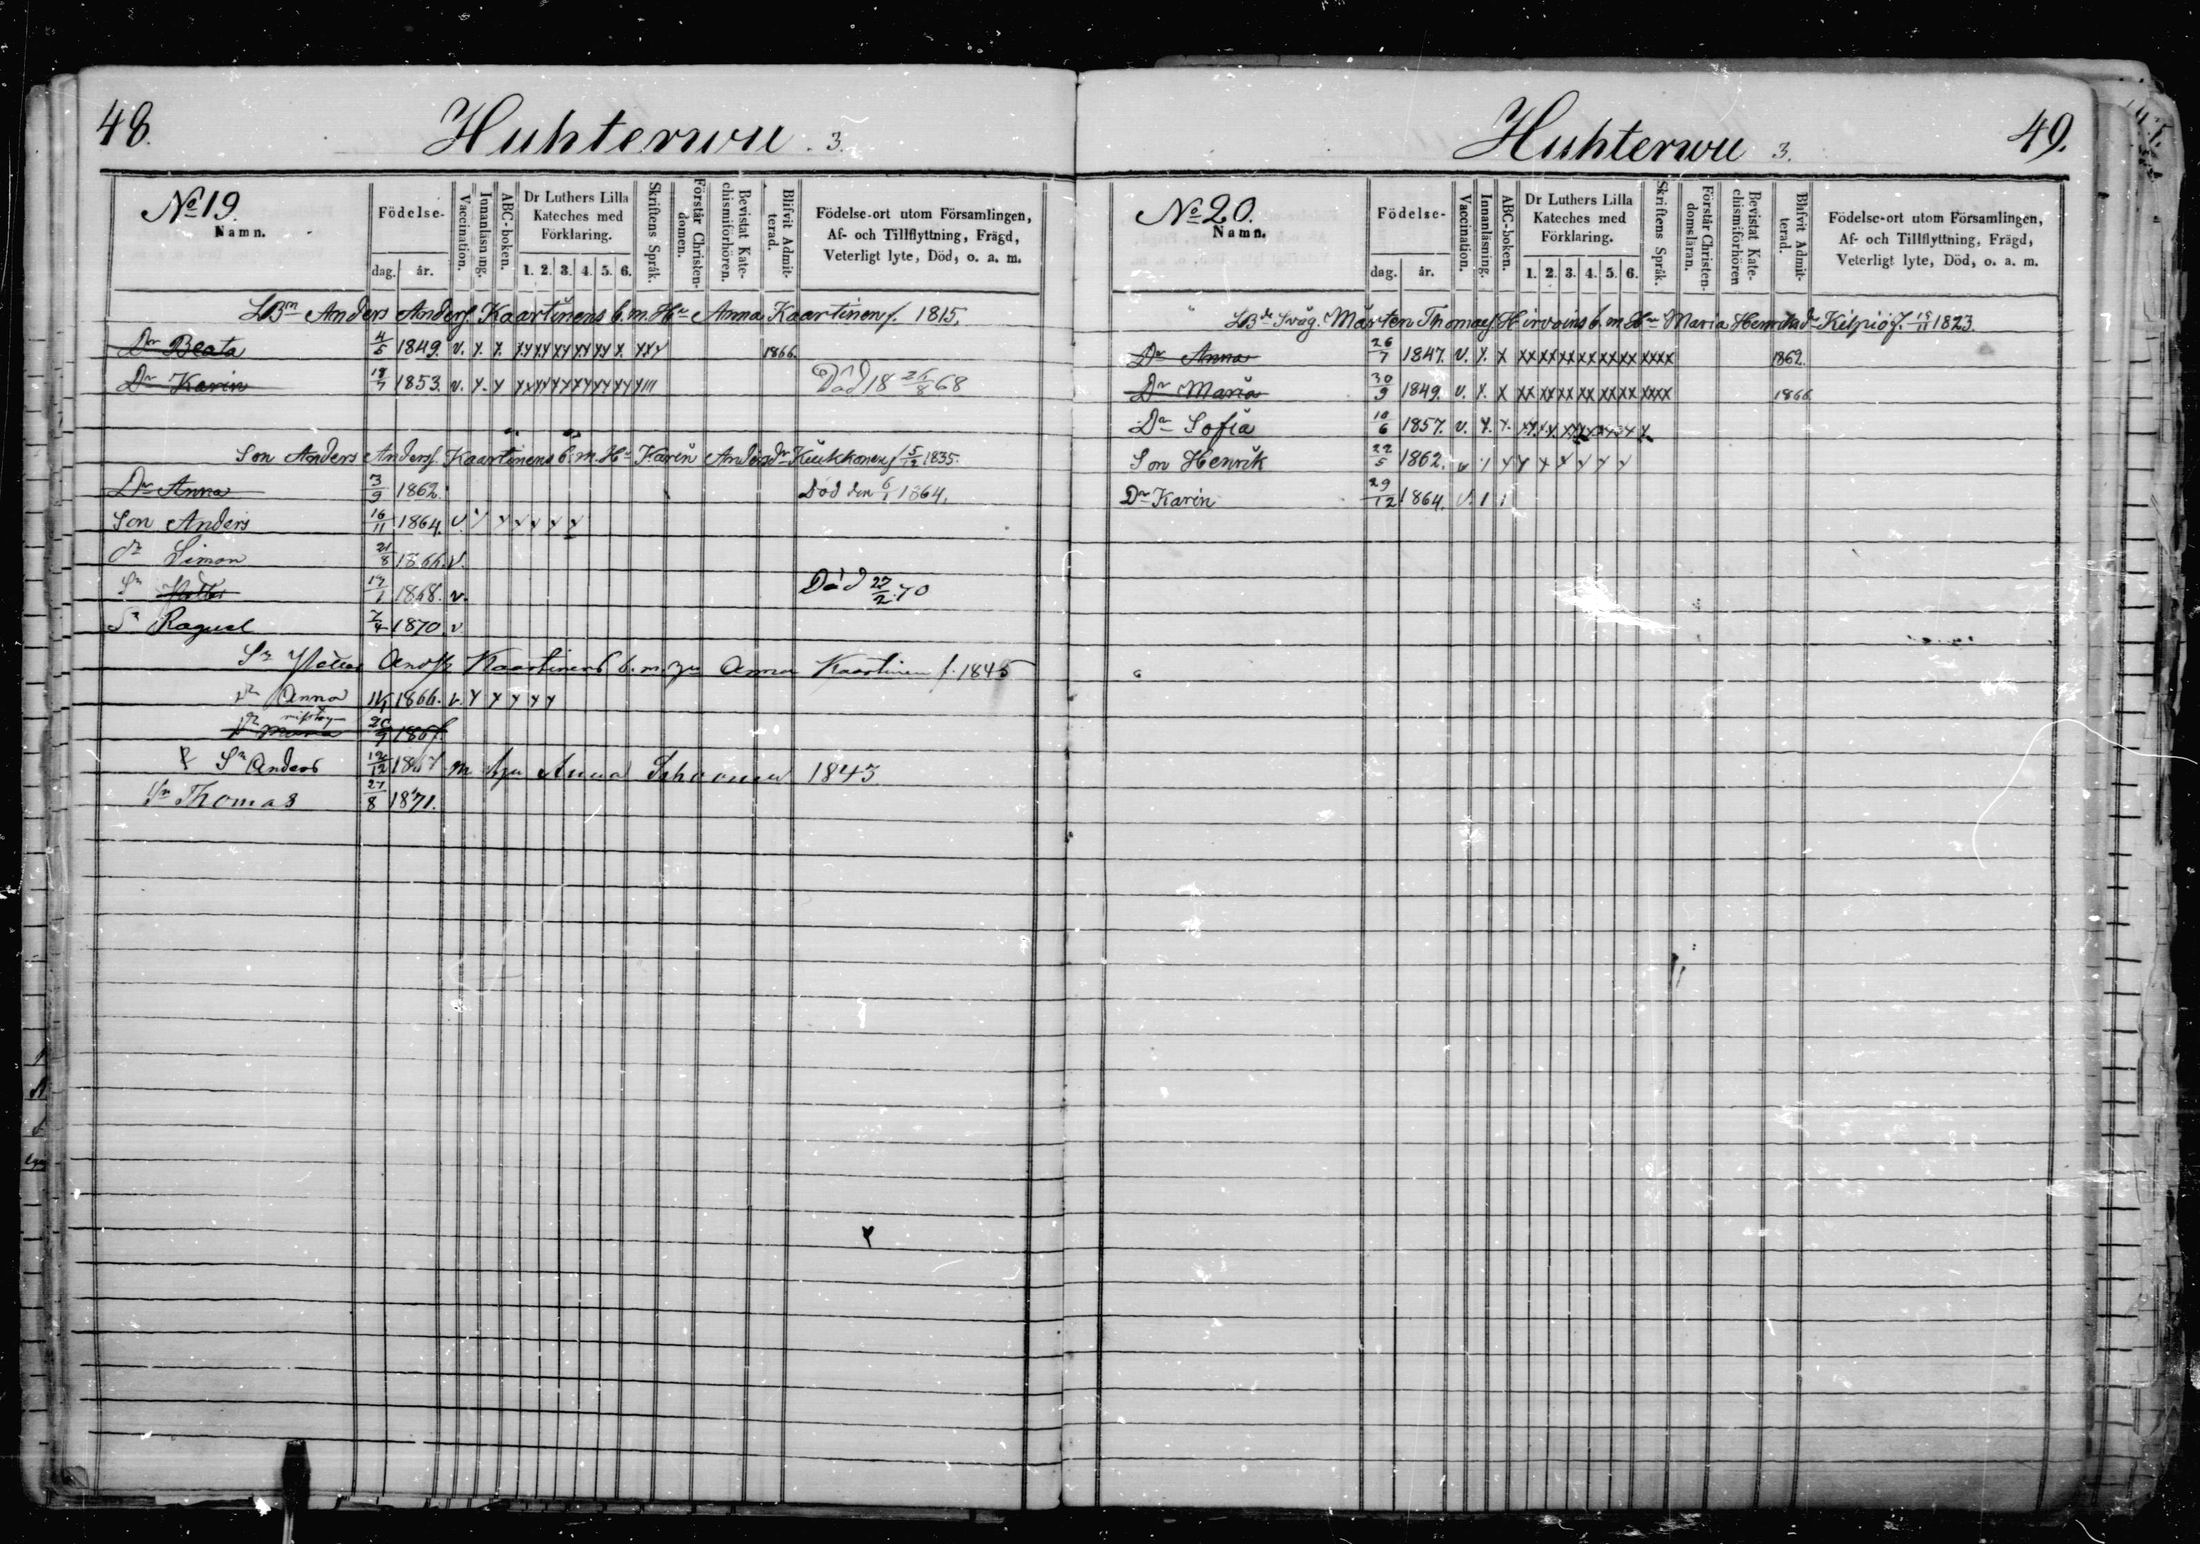 48.
Huhterwu 3.
No 19.
Namn.
Födelse-
dag. år.
Vaccination.
Innanläsning.
ABC-boken.
Dr Luthers Lilla Kateches med Förklaring.
1. 2. 3. 4. 5. 6.
Skriftens Språk.
Förstår Christendomen.
Bevistat Katechismiförhören.
Blifvit Admitterad.
Födelse-ort utom Församlingen,
Af- och Tillflyttning, Frägd,
Veterligt lyte, Död, o. a. m.
LBm Anders Anders. Kaartinens b. m. Hu Anna Kaartinen f. 1815.
Dr Beata 4/5 1849. v. x. x. xx xx xx xx xx x. xxx 1866.
Dr Karin 18/7 1853. v. x. x Död 18 26/8 68
Son Anders Anders. Kaartinens b. m. Hu Karin Andersdr Kiukkonen f 5/12 1835.
Dr Anna 3/9 1862. Död den 6/1 1864.
Son Anders 16/11 1864. v. x x x x x x
Simon 21/8 1866. v.
Sn 17/1 1868. v. Död 27/2 70
Sn Raguel 7/4 1870 v
Sn Kaartinens b. m. hu Anna Kaartinen f. 1845
Dr Anna 1866. v. x x x x x
Dr Maria
Sn Anders 12/12 1867 m hu Anna 1843
Sn Thomas 27/8 1871.
49.
Huhterwu 3.
No 20.
Namn.
Födelse-
dag. år.
Vaccination.
Innanläsning.
ABC-boken.
Dr Luthers Lilla Kateches med Förklaring.
1. 2. 3. 4. 5. 6.
Skriftens Språk.
Förstår Christendomsläran.
Bevistat Katechismiförhören
Blifvit Admitterad.
Födelse-ort utom Församlingen,
Af- och Tillflyttning, Frägd,
Veterligt lyte, Död, o. a. m.
LBds Svåg. Mårten Thomas. Hirvoins b. m. Hu Maria Henriksdr Kilpiö f. 15/11 1823.
Dr Anna 26/7 1847. v. x. x xx xx xx xx xx xx xxxx 1862.
Dr Maria 30/9 1849. v. x. x xx xx xx xx xx xx xxxx 1866.
Dr Sofia 10/6 1857. v. x. x.
Son Henrik 22/5 1862. v / x x x x x x x
Dr Karin 29/12 1864. v. / /